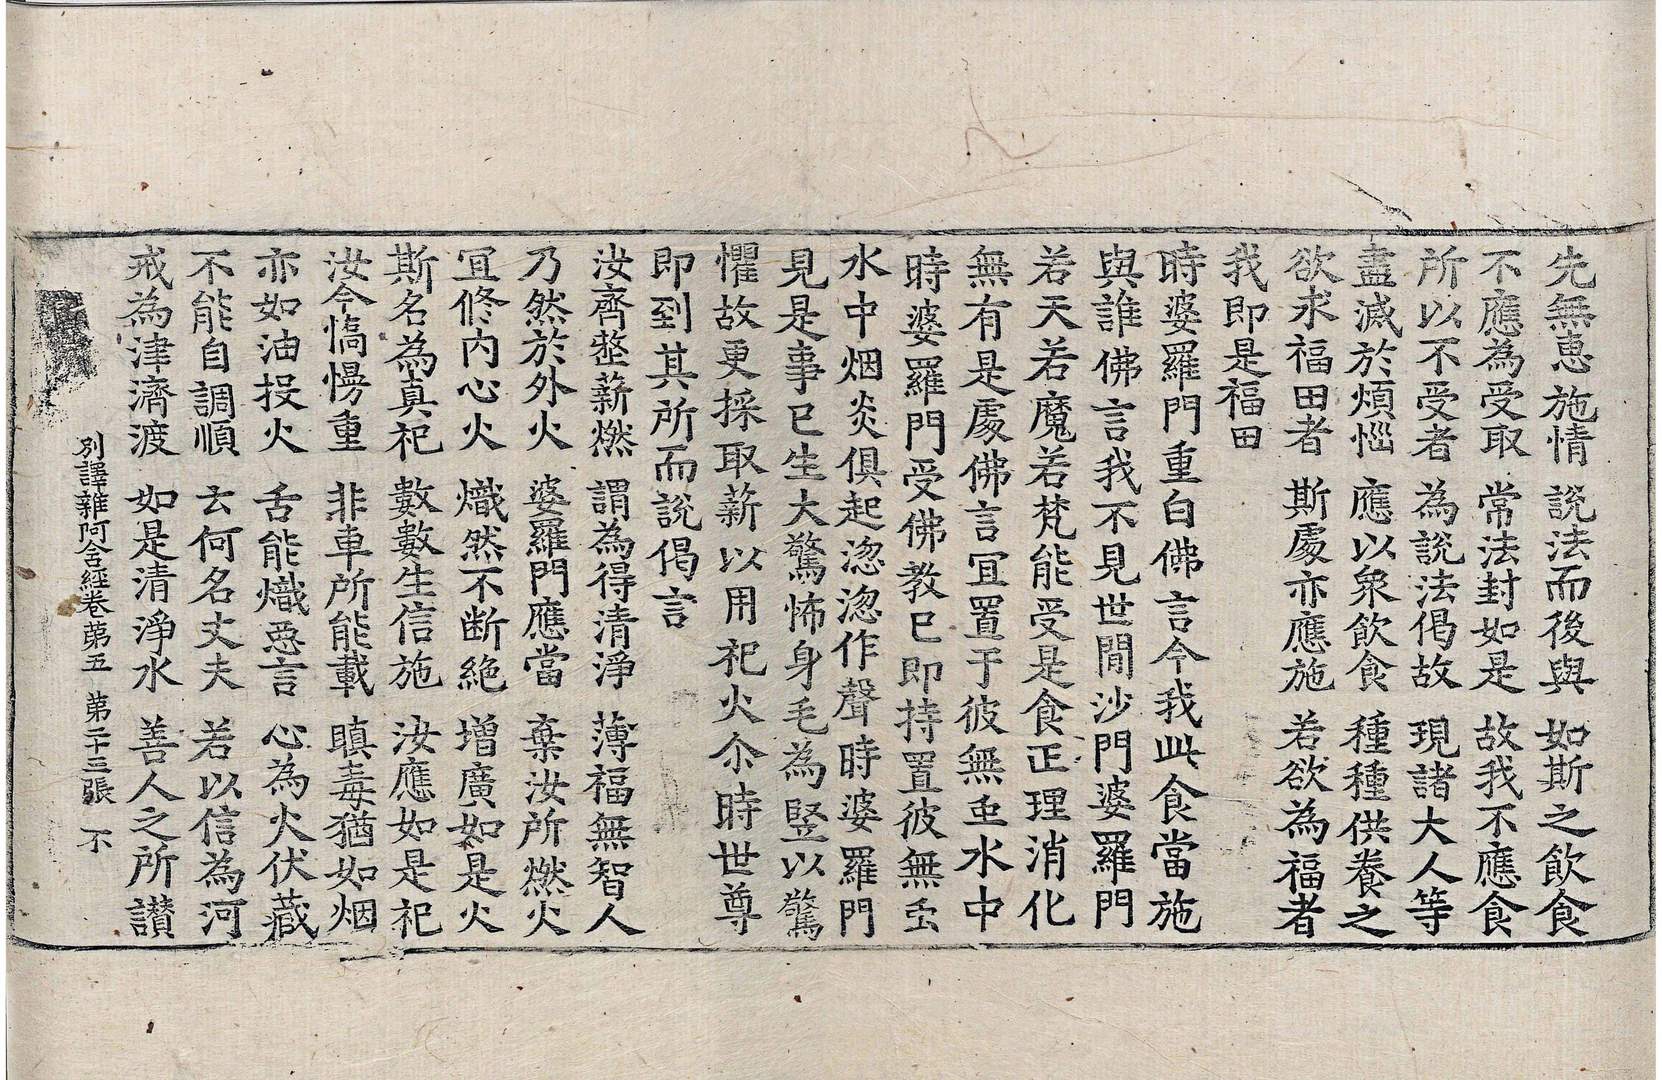 先無惠施情　說法而後與　如斯之飲食
不應為受取　常法封如是　故我不應食
所以不受者　為說法偈故　現諸大人等
盡滅於煩惱　應以衆飲食　種種供養之
欲求福田者　斯處亦應施　若欲為福者
我即是福田
時婆羅門重白佛言今我此食當施
與誰佛言我不見世間沙門婆羅門
若天若魔若梵能受是食正理消化
無有是處佛言冝置于彼無虫水中
時婆羅門受佛教已即持置彼無虫
水中烟炎俱起淴淴作聲時婆羅門
見是事已生大驚怖身毛為竪以驚
懼故更採取薪以用祀火尒時世尊
即到其所而說偈言
汝齊整薪燃　謂為得清淨　薄福無智人
乃然於外火　婆羅門應當　棄汝所燃火
冝修內心火　熾然不断絕　增廣如是火
斯名為真祀　數數生信施　汝應如是祀
汝今憍慢重　非車所能載　瞋毒猶如烟
亦如油投火　舌能熾惡言　心為火伏藏
不能自調順　云何名丈夫　若以信為河
戒為津濟渡　如是清淨水　善人之所讃
別譯雜阿含經卷苐五　第二十三張　不